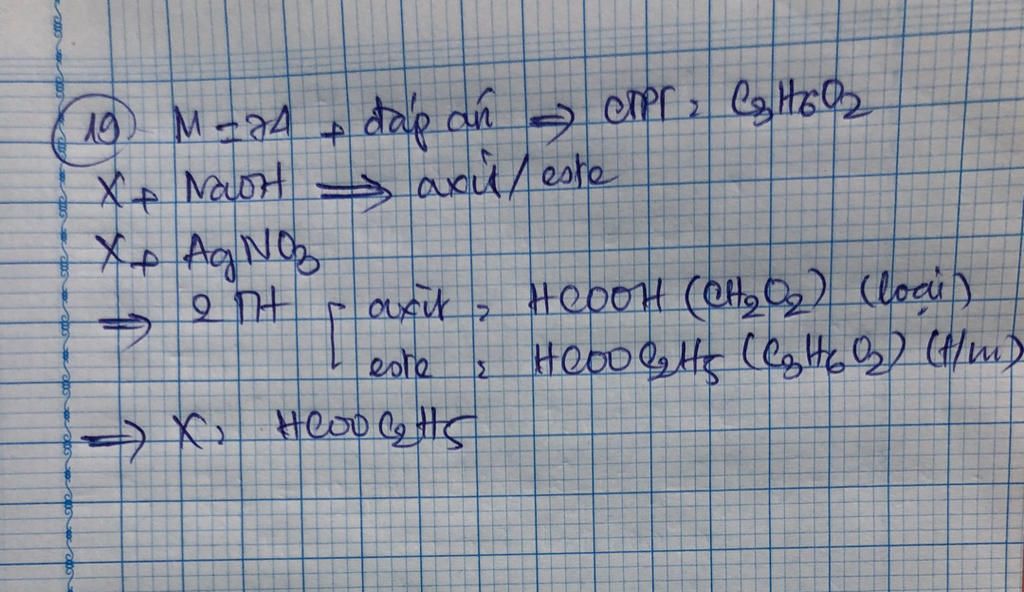 19 M = 74 + đáp án ⇒ CTPT: C3H6O2
X + NaOH ⇒ axit / este
X + AgNO3
⇒ 2 TH [ axit: HCOOH (CH2O2) (loại)
este: HCOOC2H5 (C3H6O2) (t/m)
⇒ X: HCOOC2H5